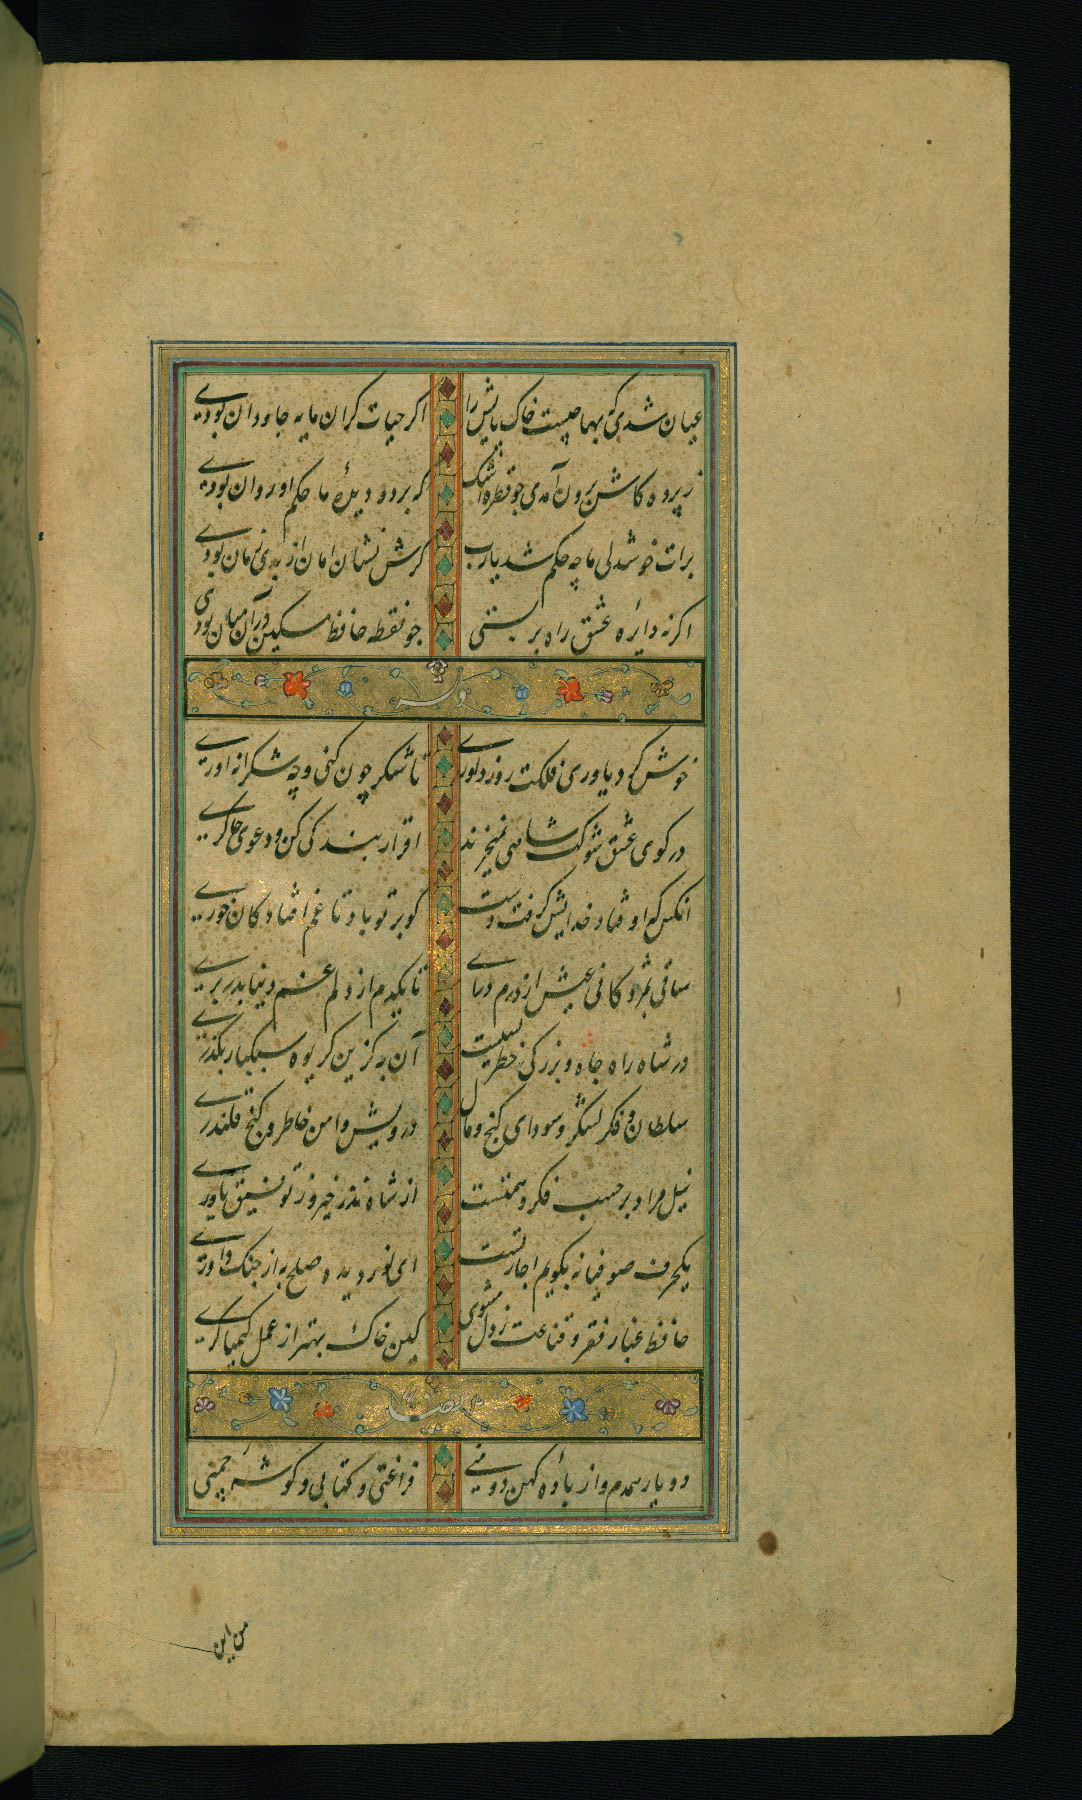 عیان شدی که بها چیست خاک پایش را اگر حیات گران مایه جاودان بودی
ز پرده کاش برون آمدی چو قطره اشک که بر دو دیدهٔ ما حکم او روان بودی
برات خوشدلی ما چه حکم شد یارب گرش نشان امان از بدی زمان بودی
اگر نه دایره عشق راه بر بستی چو نقطه حافظ مسکین در آن میان بودی
وله
خوش کرد یاوری فلکت روز داوری تا شکر چون کنی و چه شکرانه اوری
در کوی عشق شوکت شاهی نمیخرند اقرار بندگی کن و دعوی چاکری
انکس که اوفتاد خدایش گرفت دست گو بر تو باد تا غم افتادگان خوری
ساقی بمژدگانی عیش از درم درای تا یکدم از دلم غم دنیا بدر بری
در شاه راه جاه و بزرگی خطر بسیست آن به کزین گریوه سبکبار بگذری
سلطان و فکر لشکر و سودای گنج و مال درویش و امن خاطر و کنج قلندری
نیل مراد بر حسب فکر و همتست از شاه نذر خیر و ز توفیق یاوری
یکحرف صوفیانه بگویم اجازتست ای نور دیده صلح به از جنک و داوری
حافظ غبار فقر و قناعت ز دل مشوی کین خاک بهتر از عمل کیمیاگری
وله ایضا
دو یار همدم و از بادهٔ کهن دو منی فراغتی و کتابی و گوشهٔ چمنی
من این